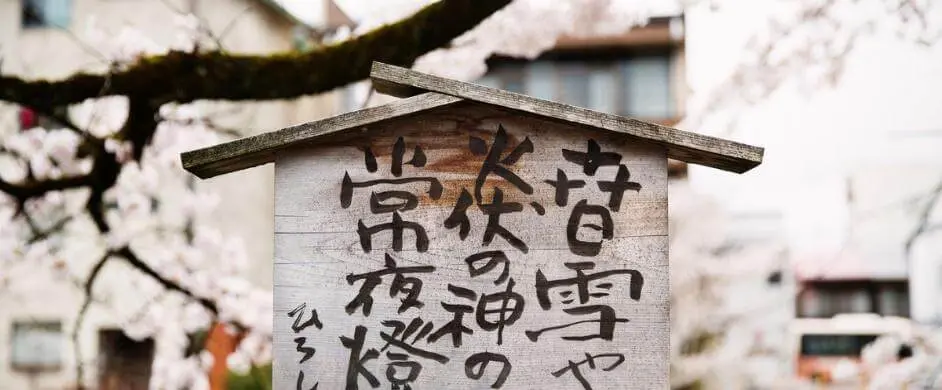 春雪や
火伏の神の
常夜燈
ひろし